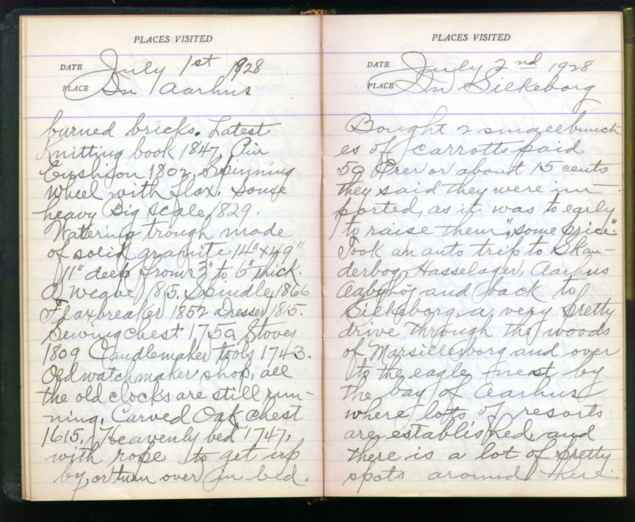 PLACES VISITED
DATE July 1st 1928
PLACE In Aarhus
burned bricks. Latest
Knitting book 1847, Pin
Cushion 1802, Spinning
Wheel with flax. Some
heavy Big Scale, 1829.
Watering trough made
of solid granite 14" x 49"
11" deep from 3" to 6 thick.
1815. Spindle 1866
Flaxbreaker 1852 Dresser 1815.
Sewing chest 1750 Stoves
1809 Candlemaker tools 1743.
Old watchmaker shop, all
the old clocks are still run-
ning. Carved Oak chest
1615, Heavenly bed 1747,
with rope to get up
by, or turn over in bed.
PLACES VISITED
DATE July 2nd 1928
PLACE In Silkeborg
Bought 2 small bunch
es of carrotts paid
50 Örer or about 15 cents
they said they were im
ported, as it was to early
to raise them, "some price"
Took an auto trip to Skan-
derborg, Hasselager, Aarhus
Aabyhöj and back to
Silkeborg, a very pretty
drive through the woods
of Marsilleborg and over
to the eagle finest by
the bay of Aarhus
where lotts of resorts
are established, and
there is a lot of pretty
spots around here.